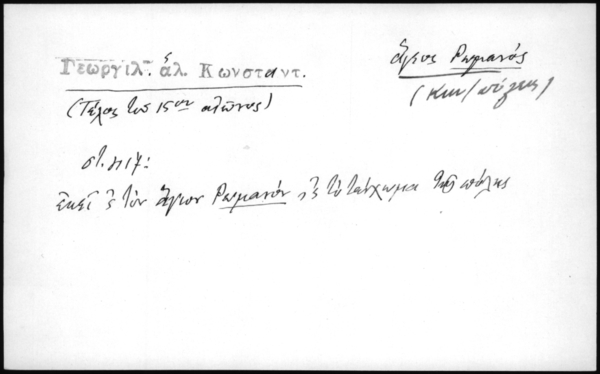 Γεωργιλ. ἁλ. Κωνσταντ.
ἅγιος Ρωμανός
(Τέλος του 15ου αἰῶνος)
(Κων/πόλεως)
στ.
ἐκεῖ ς τὸν ἅγιον Ρωμανόν, ς τὸ τείχωμα τῆς πόλης